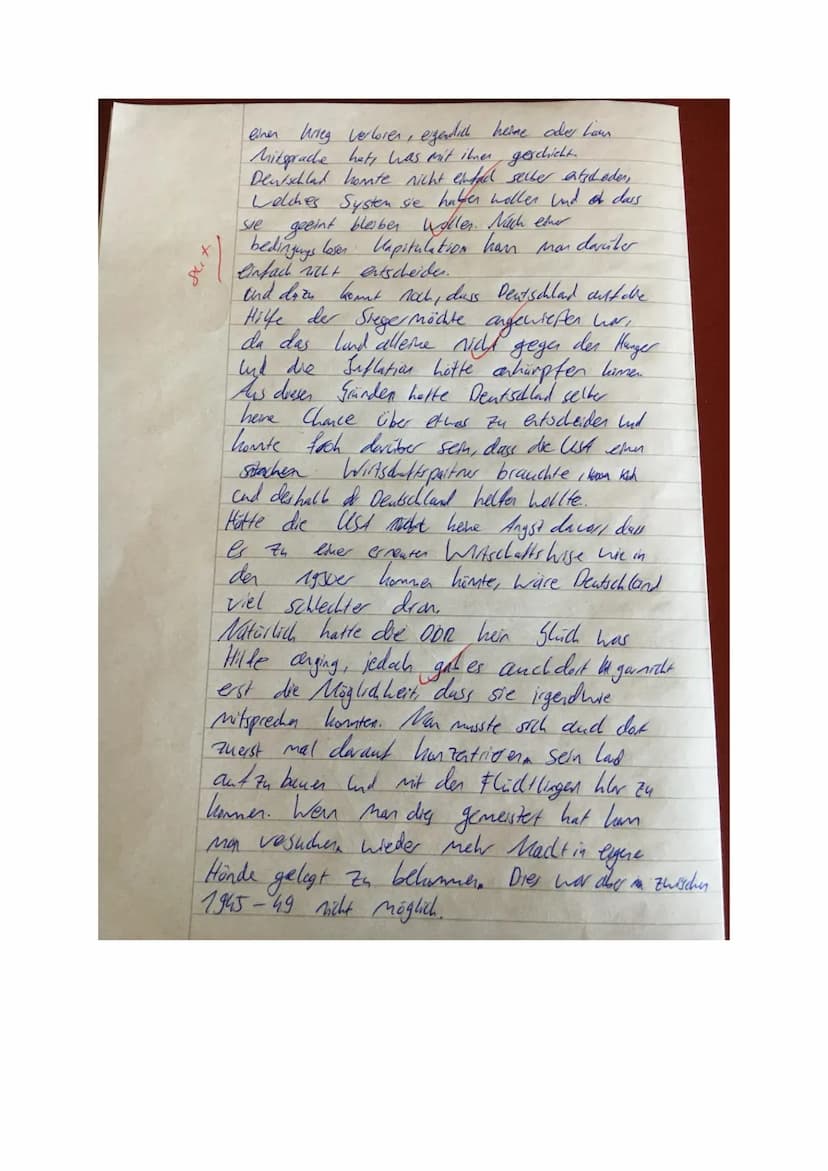 einen Krieg verloren, eigendlich keine oder kaum
Mitsprache hat, was mit ihnen geschieht.
Deutschland konnte nicht einfach selber entscheiden,
welches System sie haben wollen und ob dass
sie geeint bleiben wollen. Nach einer
bedingungslosen Kapitulation kann man darüber
einfach nicht entscheiden.
Und dazu kommt noch, dass Deutschland auf die
Hilfe der Siegermächte angewiesen war,
da das Land alleine nicht gegen den Hunger
und die Inflation hätte ankämpfen können.
Aus diesen Gründen hatte Deutschland selber
keine Chance über etwas zu entscheiden und
konnte froh darüber sein, dass die USA einen
Wirtschaftspartner brauchte,
und deshalb Deutschland helfen wollte.
Hätte die USA keine Angst davor, dass
es zu einer erneuten Wirtschaftskrise wie in
den 1930er kommen könnte, wäre Deutschland
viel schlechter dran.
Natürlich hatte die DDR kein Glück was
Hilfe anging, jedoch gab es auch dort gar nicht
erst die Möglichkeit, dass sie irgendwie
mitsprechen konnten. Man musste sich auch dort
zuerst mal darauf konzentrieren sein Land
aufzubauen und mit den Flüchtlingen klar zu
kommen. Wenn man dies gemeistert hat kann
man versuchen wieder mehr Macht in eigene
Hände gelegt zu bekommen. Dies war aber zwischen
1945-49 nicht möglich.